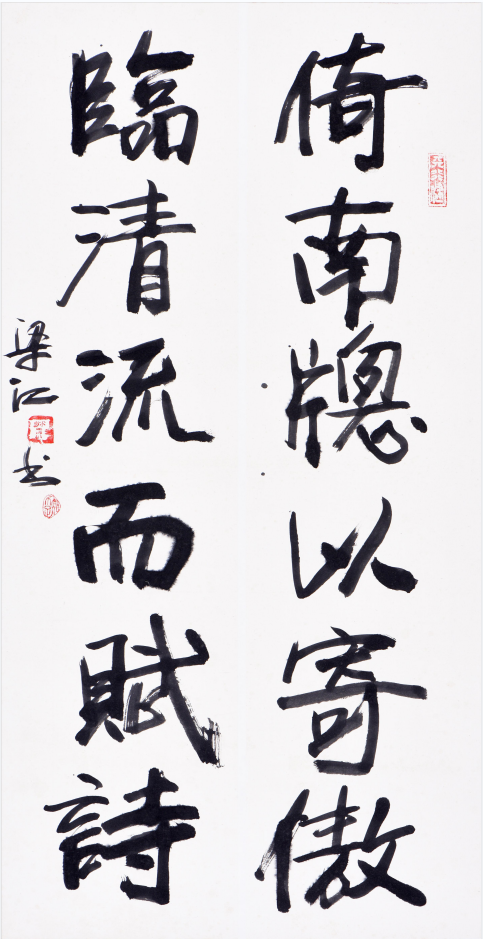 倚南牎以寄傲
臨清流而賦詩
梁江
书